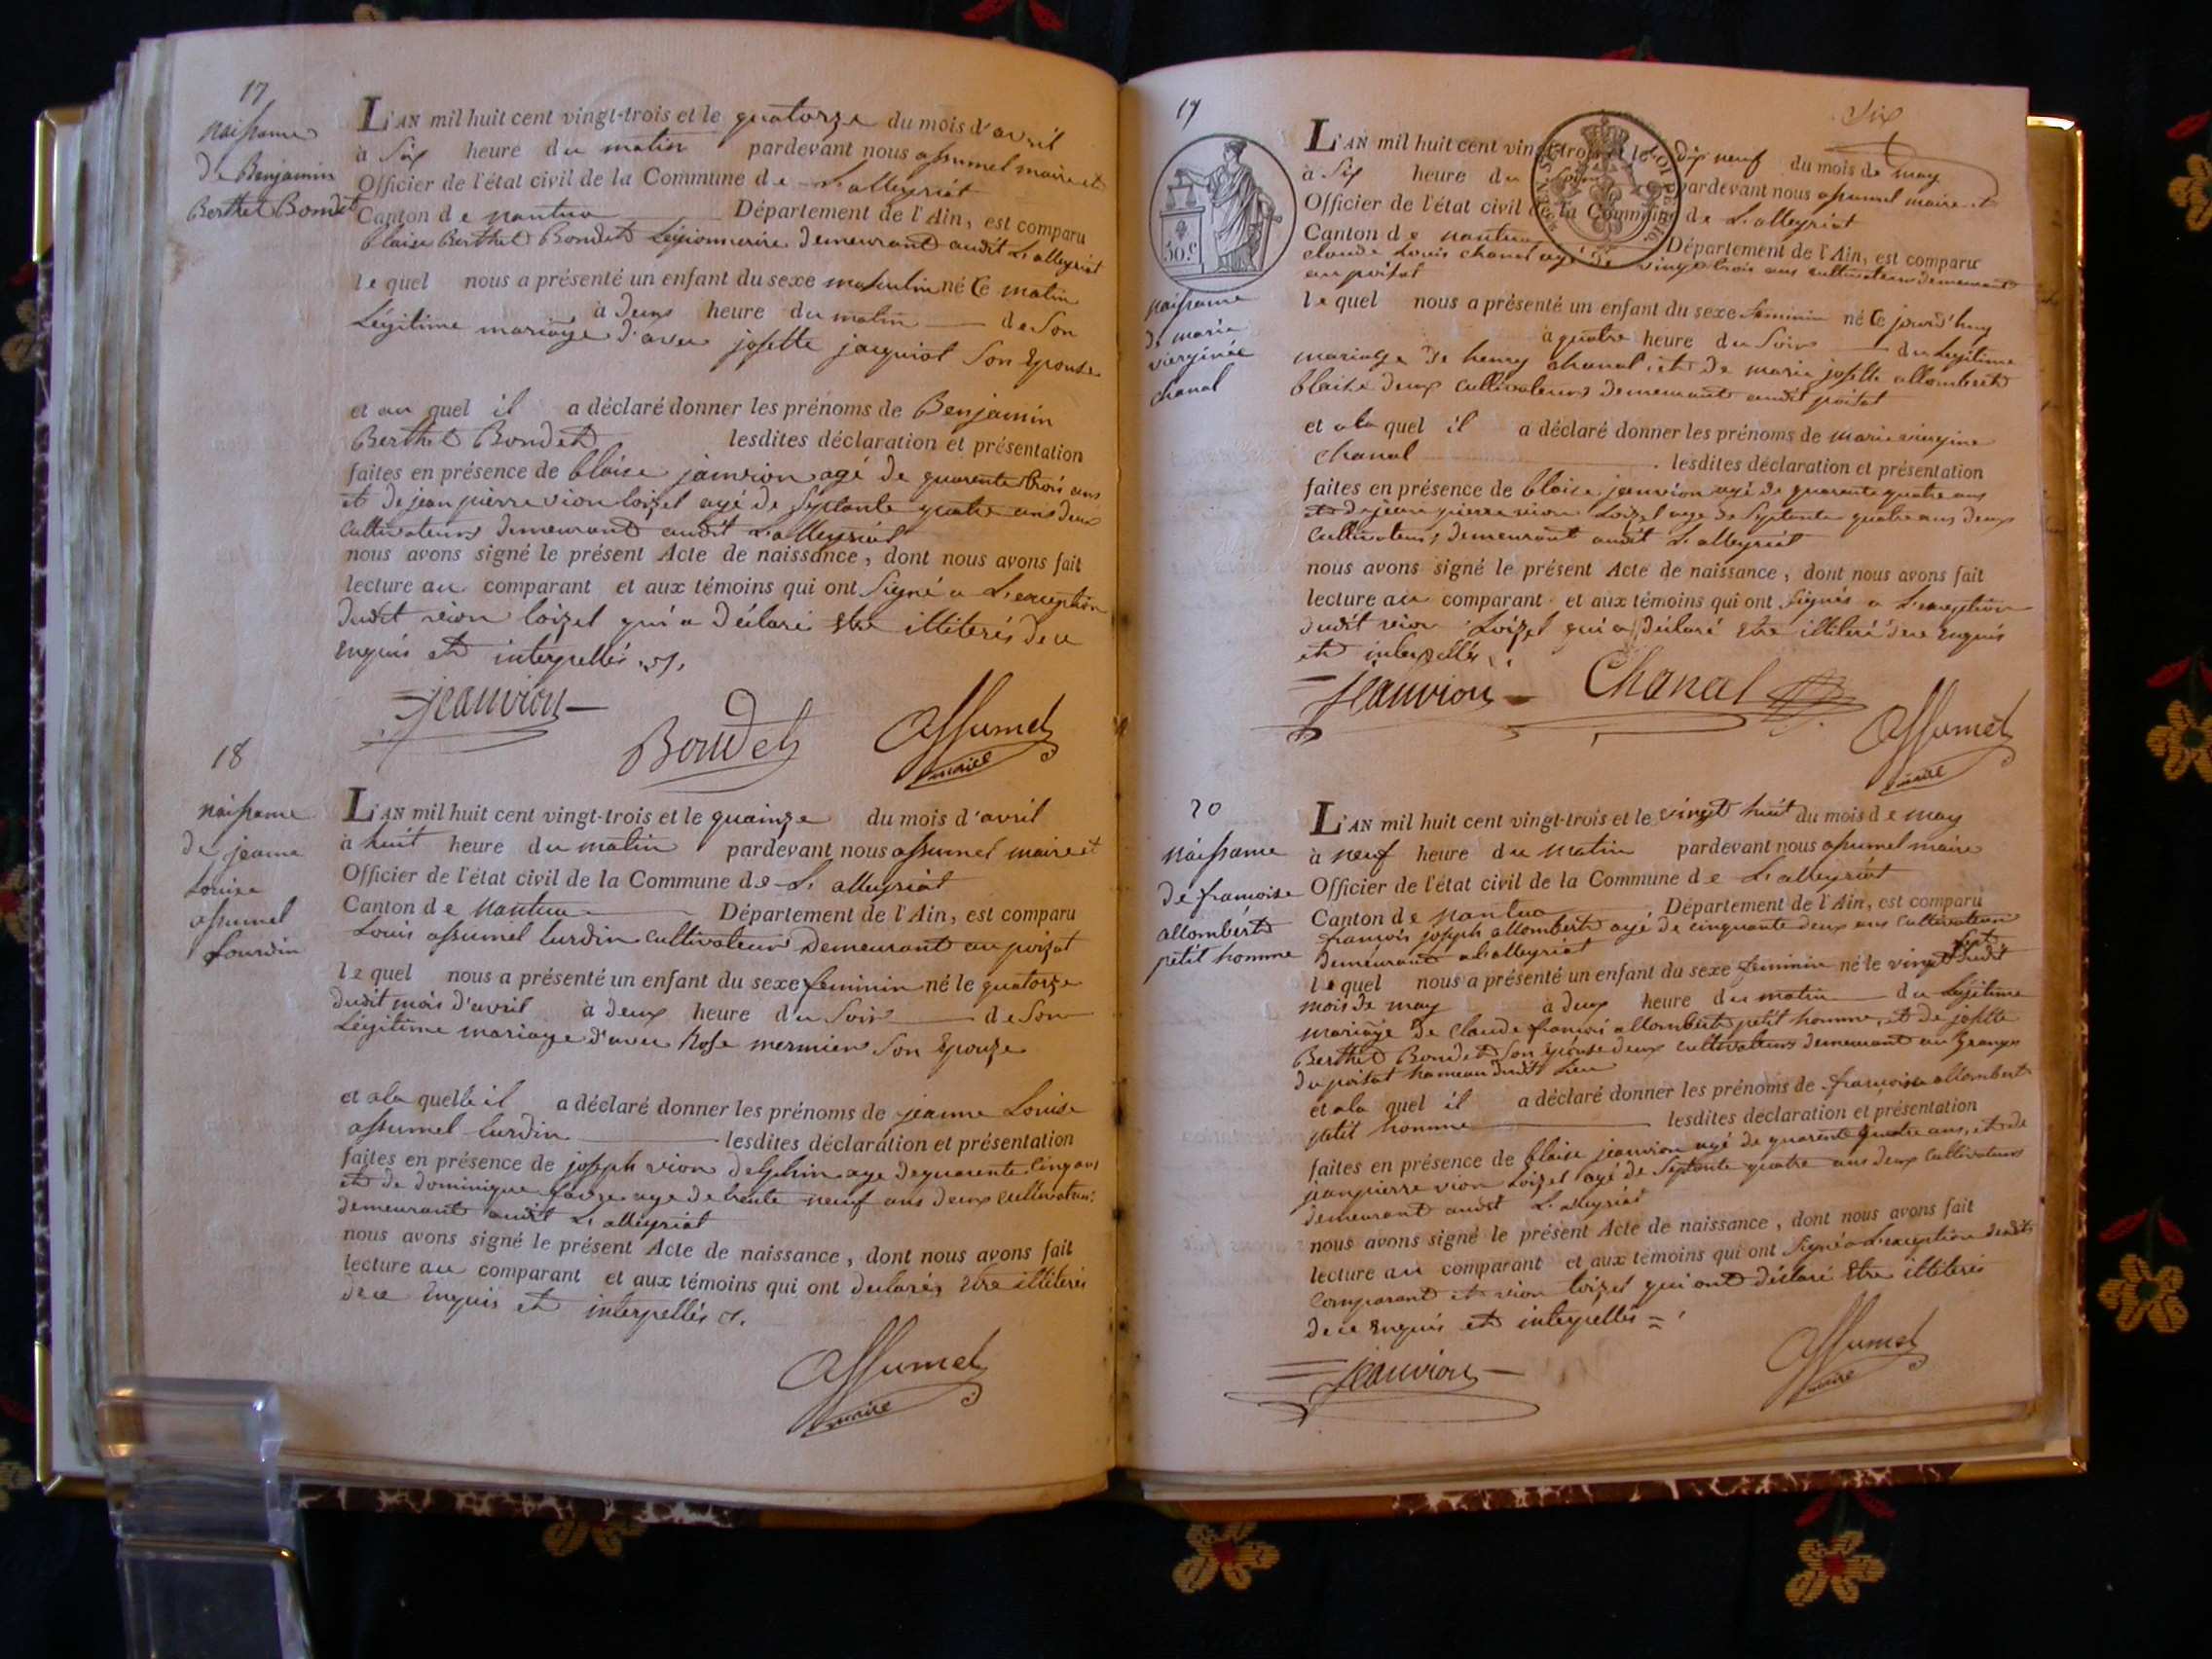 17
naissance
de Benjamin
Berthet Bondet
L'AN mil huit cent vingt-trois et le quatorze du mois d'avril
à Six heure du matin pardevant nous assumel maire et
Officier de l'état civil de la Commune de L'alleyriat
Canton de nantua Département de l'Ain, est comparu
blaise Berthet Bondet Légionnaire demeurant audit L'alleyriat
lequel nous a présenté un enfant du sexe masculin né Ce matin
à deux heure du matin de Son
Légitime mariage d'avec josette jacquiot Son Epouse
et au quel il a déclaré donner les prénoms de Benjamin
Berthet Bondet lesdites déclaration et présentation
faites en présence de blaise janvion agé de quarente trois ans
et de jean pierre vion loizel agé de Septante quatre ans deux
Cultivateurs demeurant audit L'alleyriat
nous avons signé le présent Acte de naissance, dont nous avons fait
lecture au comparant et aux témoins qui ont Signé a L'exception
dudit vion loizel qui a déclaré Etre illiterés de ce
enquis et interpellés
jeanvion
Bondet
Assumel
maire
18
naissance
de jeanne
Louise
assumel
Lourdin
L'AN mil huit cent vingt-trois et le quainze du mois d'avril
à huit heure du matin pardevant nous assumel maire et
Officier de l'état civil de la Commune de L'alleyriat
Canton de Nantua Département de l'Ain, est comparu
Louis assumel lurdin cultivateur demeurant au poizat
lequel nous a présenté un enfant du sexe feminin né le quatorze
dudit mois d'avril à deux heure du Soir de Son
Légitime mariage d'avec Rose mermier Son Epouze
et a la quelle il a déclaré donner les prénoms de jeanne Louise
assumel lurdin lesdites déclaration et présentation
faites en présence de joseph vion delphin age de quarente Cinq ans
et de dominique favre age de trente neuf ans deux cultivateurs
demeurant audit L'alleyriat
nous avons signé le présent Acte de naissance, dont nous avons fait
lecture au comparant et aux témoins qui ont declarés Etre illiterés
de ce Enquis et interpellés
Assumel
maire
19
Six
50 c
naissance
de marie
vierginée
chanal
L'AN mil huit cent vingt-trois et le dix neuf du mois de may
à Six heure du Soir pardevant nous assumel maire et
Officier de l'état civil de la Commune de L'alleyriat
Canton de nantua Département de l'Ain, est comparu
claude Louis chanal agé de vingt trois ans cultivateur demeurant
au poizat
lequel nous a présenté un enfant du sexe feminin né Ce jourd'huy
à quatre heure du Soir du Legitime
mariage de henry chanal et de marie josette allombert
blaise deux cultivateurs demeurant audit poizat
et a la quel il a déclaré donner les prénoms de marie viergine
chanal lesdites déclaration et présentation
faites en présence de blaise jeanvion agé de quarente quatre ans
et de jean pierre vion Loizel age de Septante quatre ans deux
Cultivateurs demeurant audit L'alleyriat
nous avons signé le présent Acte de naissance, dont nous avons fait
lecture au comparant et aux témoins qui ont Signés a L'exception
dudit vion Loizel qui a déclaré Etre illiteré de ce Enquis
et interpellés
jeanvion
Chanal
Assumel
maire
20
naissance
de françoise
allombert
petit homme
L'AN mil huit cent vingt-trois et le vingt huit du mois de may
à neuf heure du matin pardevant nous assumel maire
Officier de l'état civil de la Commune de L'alleyriat
Canton de nantua Département de l'Ain, est comparu
françois joseph allombert agé de cinquante deux ans cultivateur
demeurant a L'alleyriat
lequel nous a présenté un enfant du sexe feminin né le vingt Sept dudit
mois de may à deux heure du matin du Légitime
mariage de Claude françois allombert petit homme, et de josette
Berthet Bondet Son Epouse deux cultivateurs demeurant au Granges
du poizat hameau dudit Lieu
et a la quel il a déclaré donner les prénoms de françoise allombert
petit homme lesdites déclaration et présentation
faites en présence de blaise jeanvion agé de quarente quatre ans, et de
jean pierre vion Loizel agé de Septante quatre ans deux Cultivateurs
demeurant audit L'alleyriat
nous avons signé le présent Acte de naissance, dont nous avons fait
lecture au comparant et aux témoins qui ont Signé a L'exception desdits
Comparant et vion loizel qui ont déclaré Etre illiterés
de ce Enquis et interpellés
jeanvion
Assumel
maire